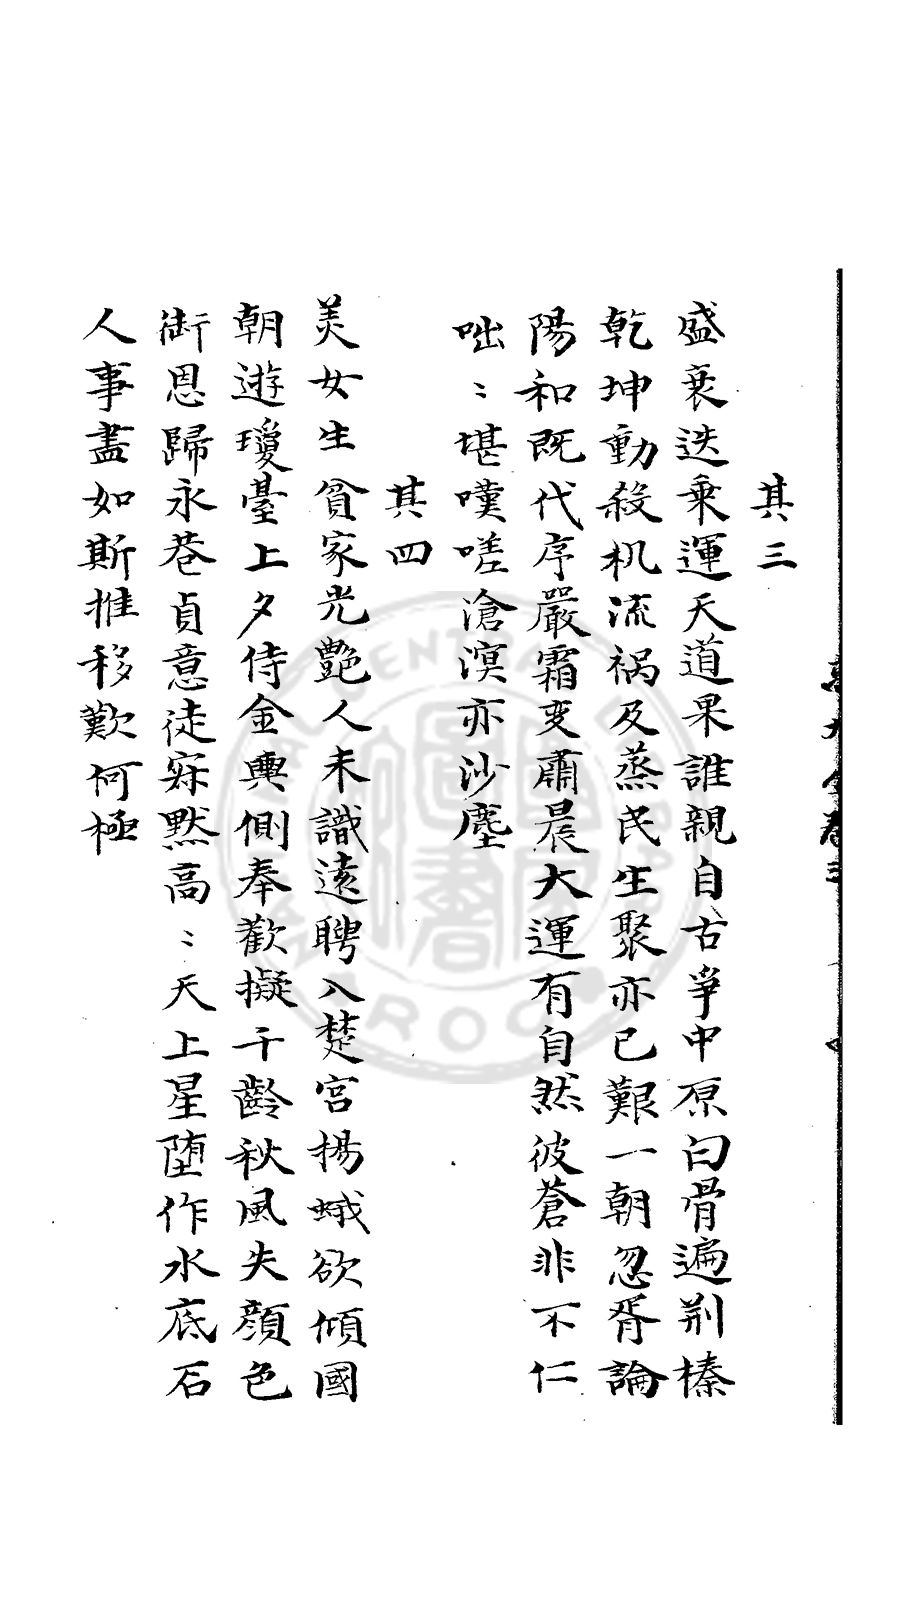 其三
盛衰迭乘運天道果誰親自古爭中原白骨遍荆榛
乾坤動殺机流祸及蒸民生聚亦已艱一朝忽胥論
陽和既代序嚴霜变肅晨大運有自然彼蒼非不仁
咄〻堪嘆嗟滄溟亦沙塵
其四
美女生貧家光艷人未識遠聘入楚宮揚蛾欲傾國
朝遊瓊臺上夕侍金輿側奉歡擬千齡秋風失顔色
銜恩歸永巷貞意徒寂默高〻天上星堕作水底石
人事盡如斯推移歎何極
CENTRAL